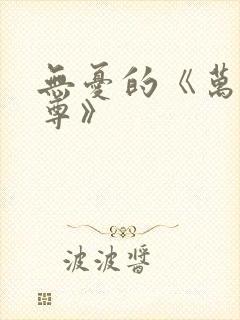 無憂的《萬
尊》
波波醬